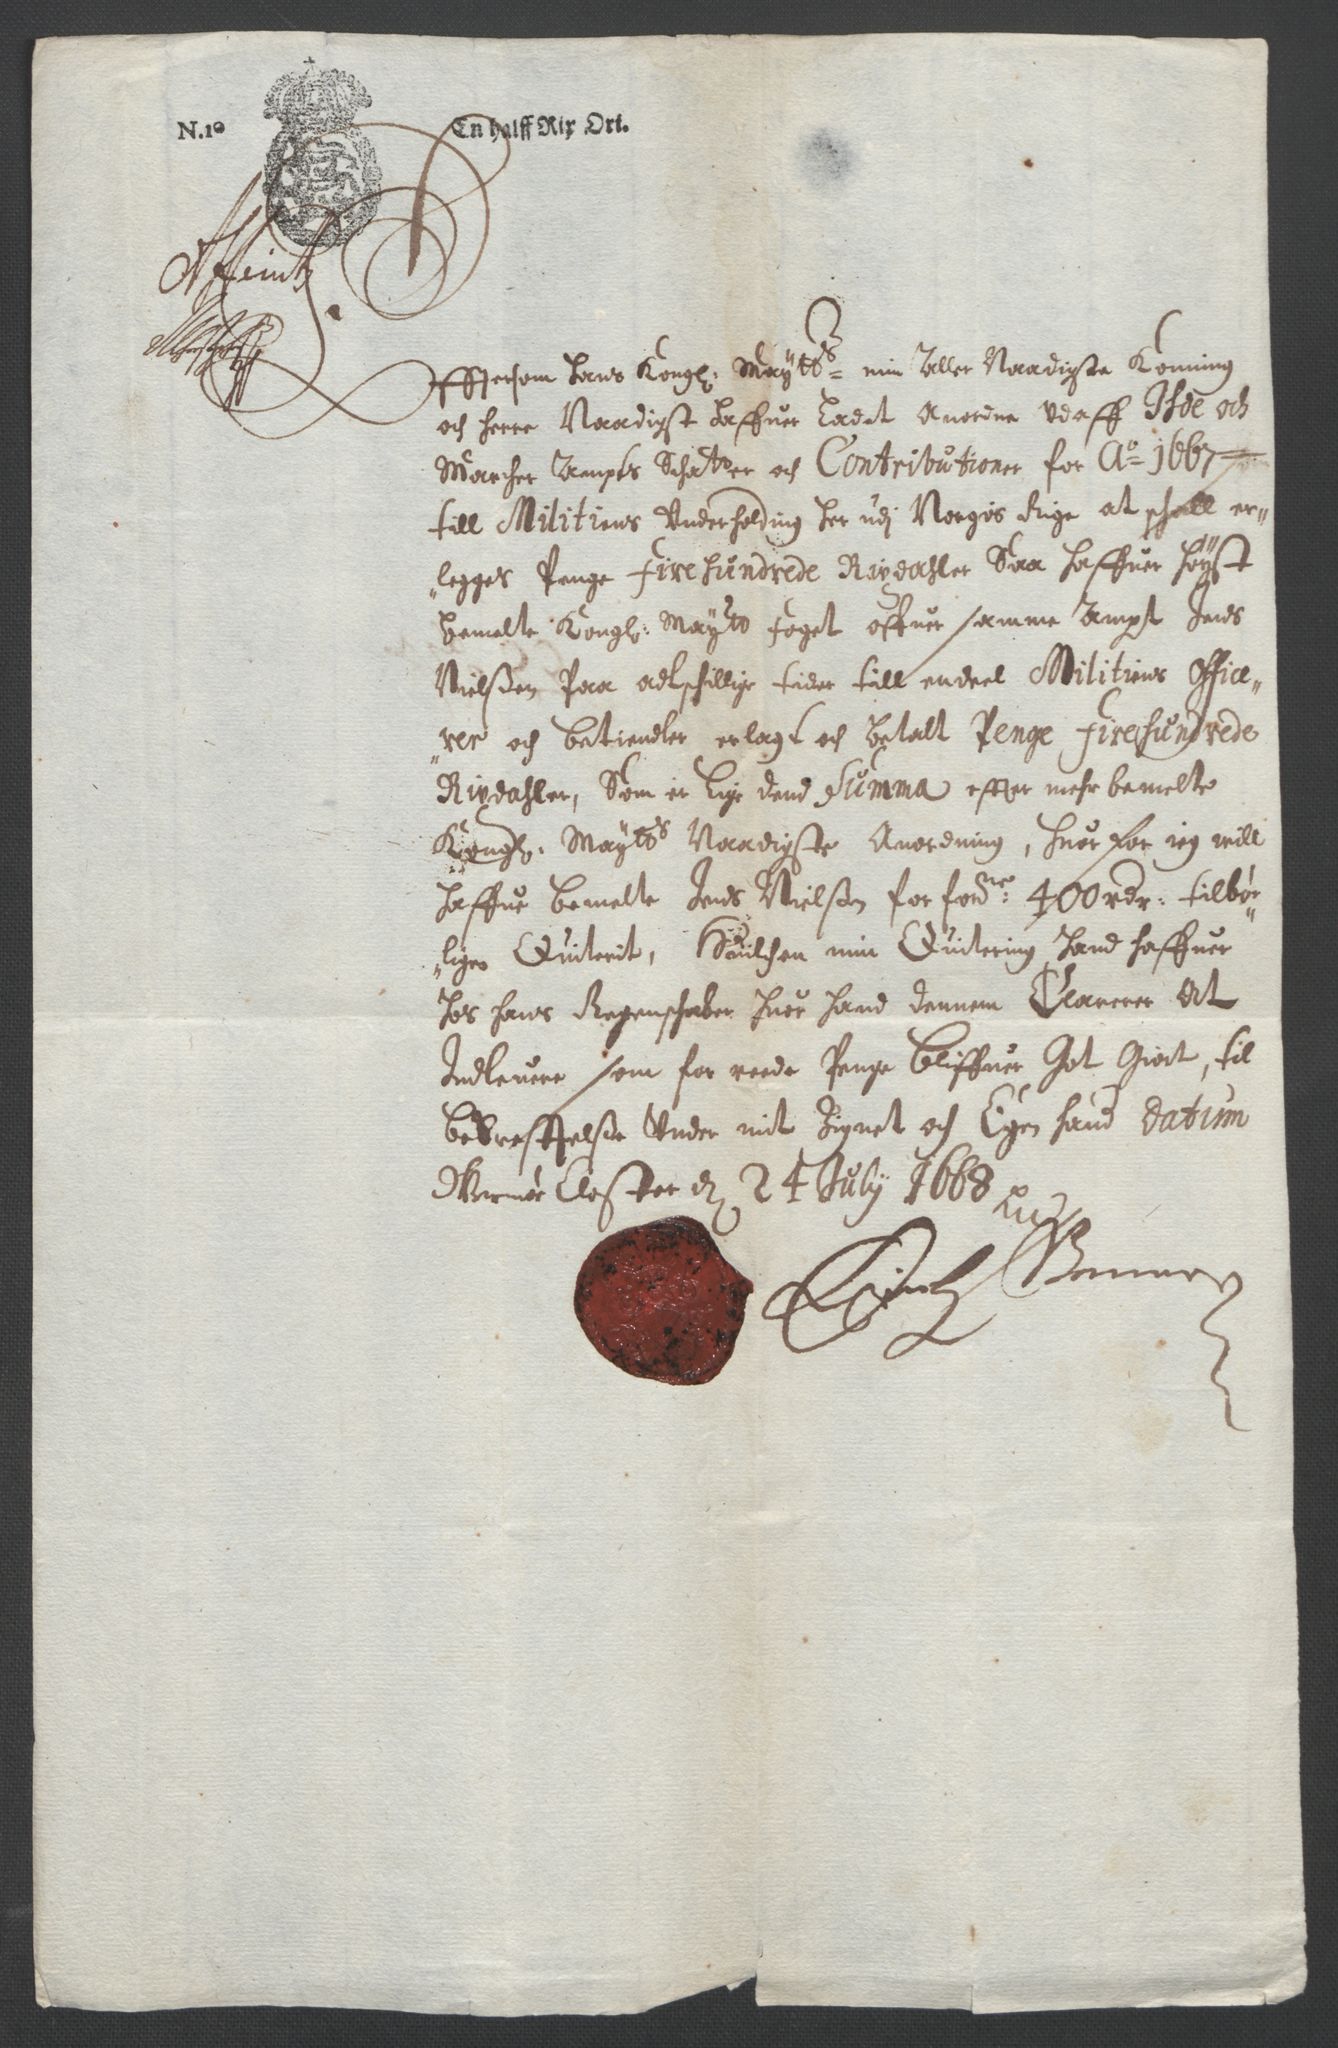 N.10 En halff Rix Ort.
Effttersom Hans Kongl: Maÿtts min Aller Naadigste Konning
och Herre Naadigst haffuer Ladet Anordne Vdaff Ihde och
Marcher Ampts Schatter och Contributioner for Ao 1667
till Militiens Vnderholding her udj Norgis Rige at schall er-
legges Penge Firehundrede Rixdahler Saa haffuer höÿst
bemelte Kongl: Maÿtts Foget offuer samme Ampt Jens
Nielßen Paa adtschillige tider till endeel Militiens Offici-
rer och betiendter erlagt och betalt Penge Firehundrede
Rixdahler, Som er Lige dend Summa effter mehr bemelte
Kongl: Maÿtts Naadigste Anordning, huor for ieg will
haffue bemelte Jens Nielßen for fordne: 400 rdr: tilbør-
ligen Quiterit, Huilchen min Quitering hand haffuer
hos hans Regenschaber huor hand dennem Clarerer At
Indleuere som for reede Penge bliffuer Got Giort, til
bekrefftelse Vnder mit Zignet och Egen hand Datum
Closter d 24 July 1668